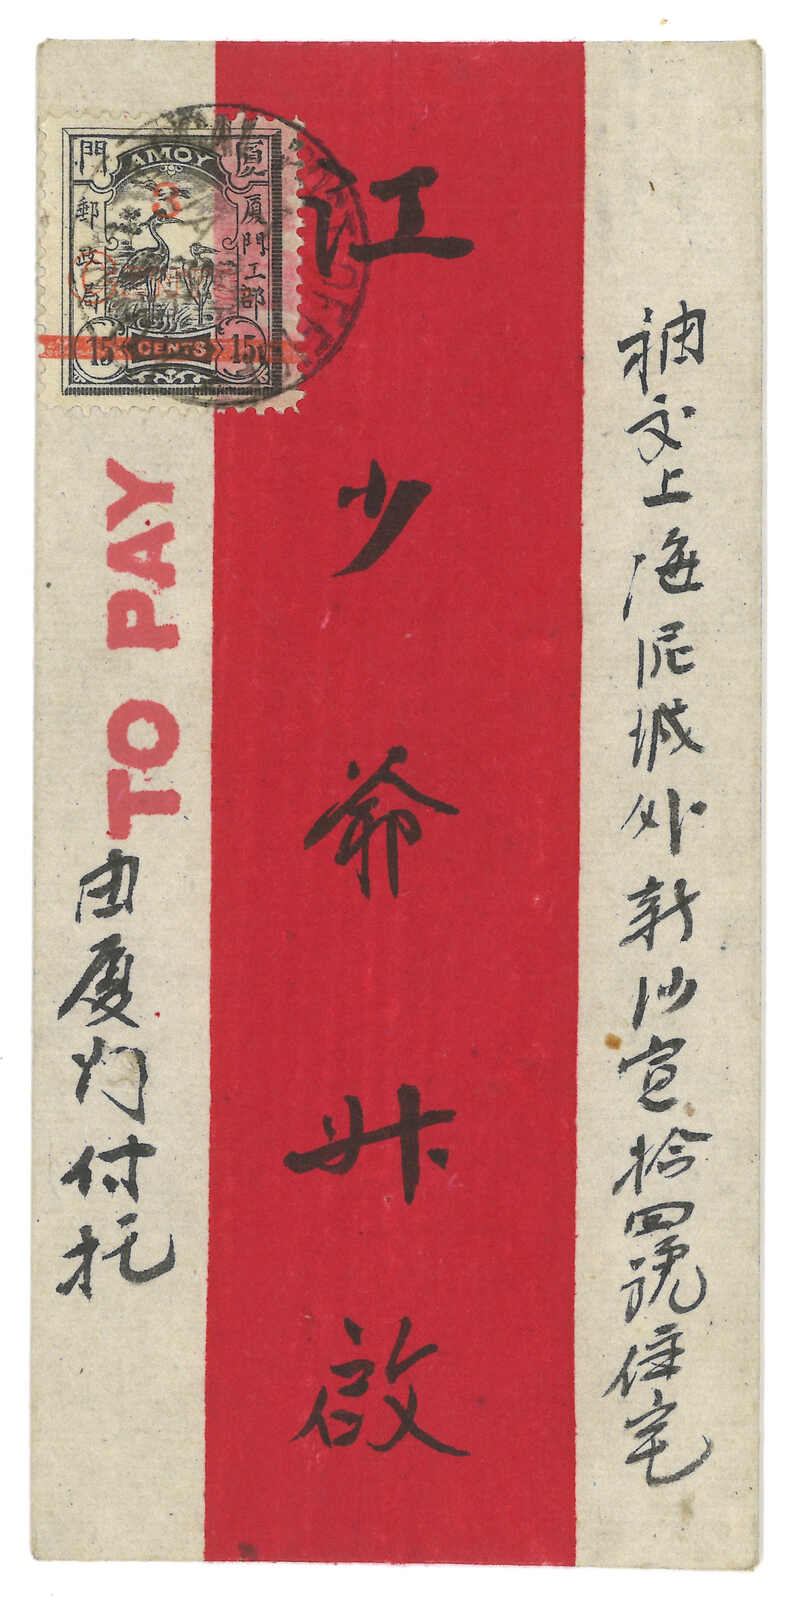 交上海泥城外新沙宣拾四號住宅
江少爺升啟
由厦門付托
TO PAY
門 AMOY 厦
厦門工部
郵政局
3
15 CENTS 15